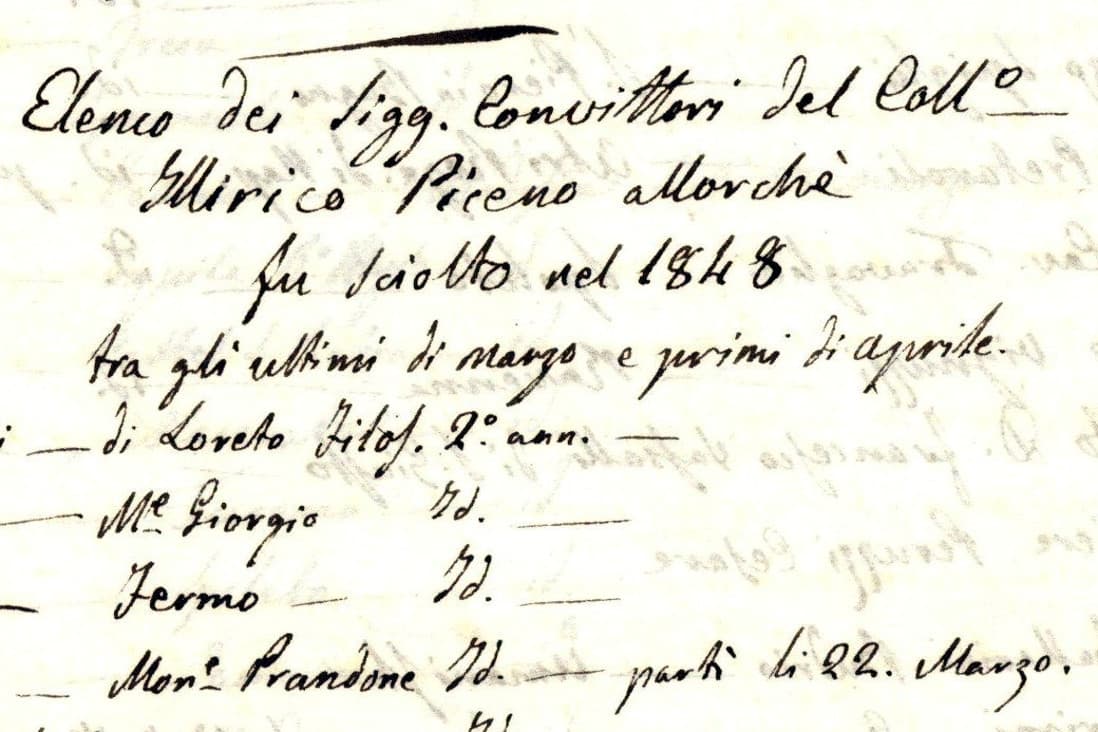 Elenco dei Sigg. Convittori del Collº
Illirico Piceno allorchè
fu sciolto nel 1848
tra gli ultimi di marzo e primi di aprile.
i — di Loreto Filos. 2º ann. —
— Mᵉ Giorgio Id. —
— Fermo — Id. —
— Monᵉ Prandone Id. — partì li 22. Marzo.
Id.